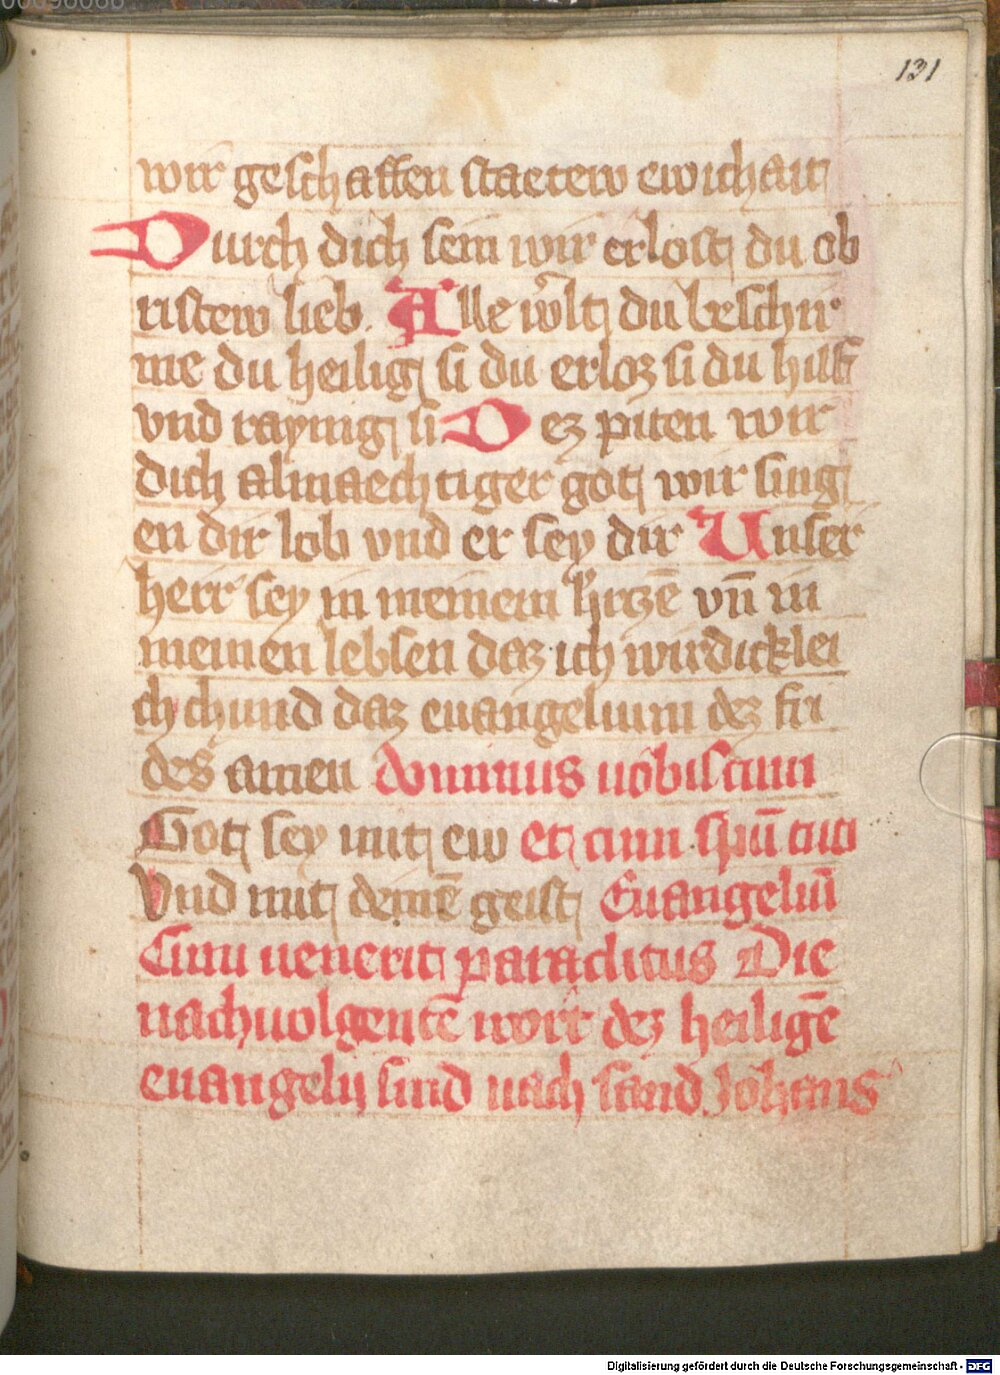 131
wir geschaffen staetew ewichait
Durch dich sein wir erlost du ob
ristew lieb. Alle w̓lt du beschir
me du heilig si du erloz si du hilff
vnd raynig si Dez piten wir
dich almaechtiger got wir sing
en dir lob vnd er sey dir Unser
herr sey in meinem h̓rczē vn̄ in
meinen lebsen daz ich wirdicklei
ch chund daz euangelium dez fri
des amen dominus uobiscum
Got sey mit ew et cum spū tuo
Vnd mit deinē geist Euangeliū
Cum uenerit paraclitus Die
nachuolgentē wort dez heiligē
euangelij sind nach sand Johans
Digitalisierung gefördert durch die Deutsche Forschungsgemeinschaft - DFG